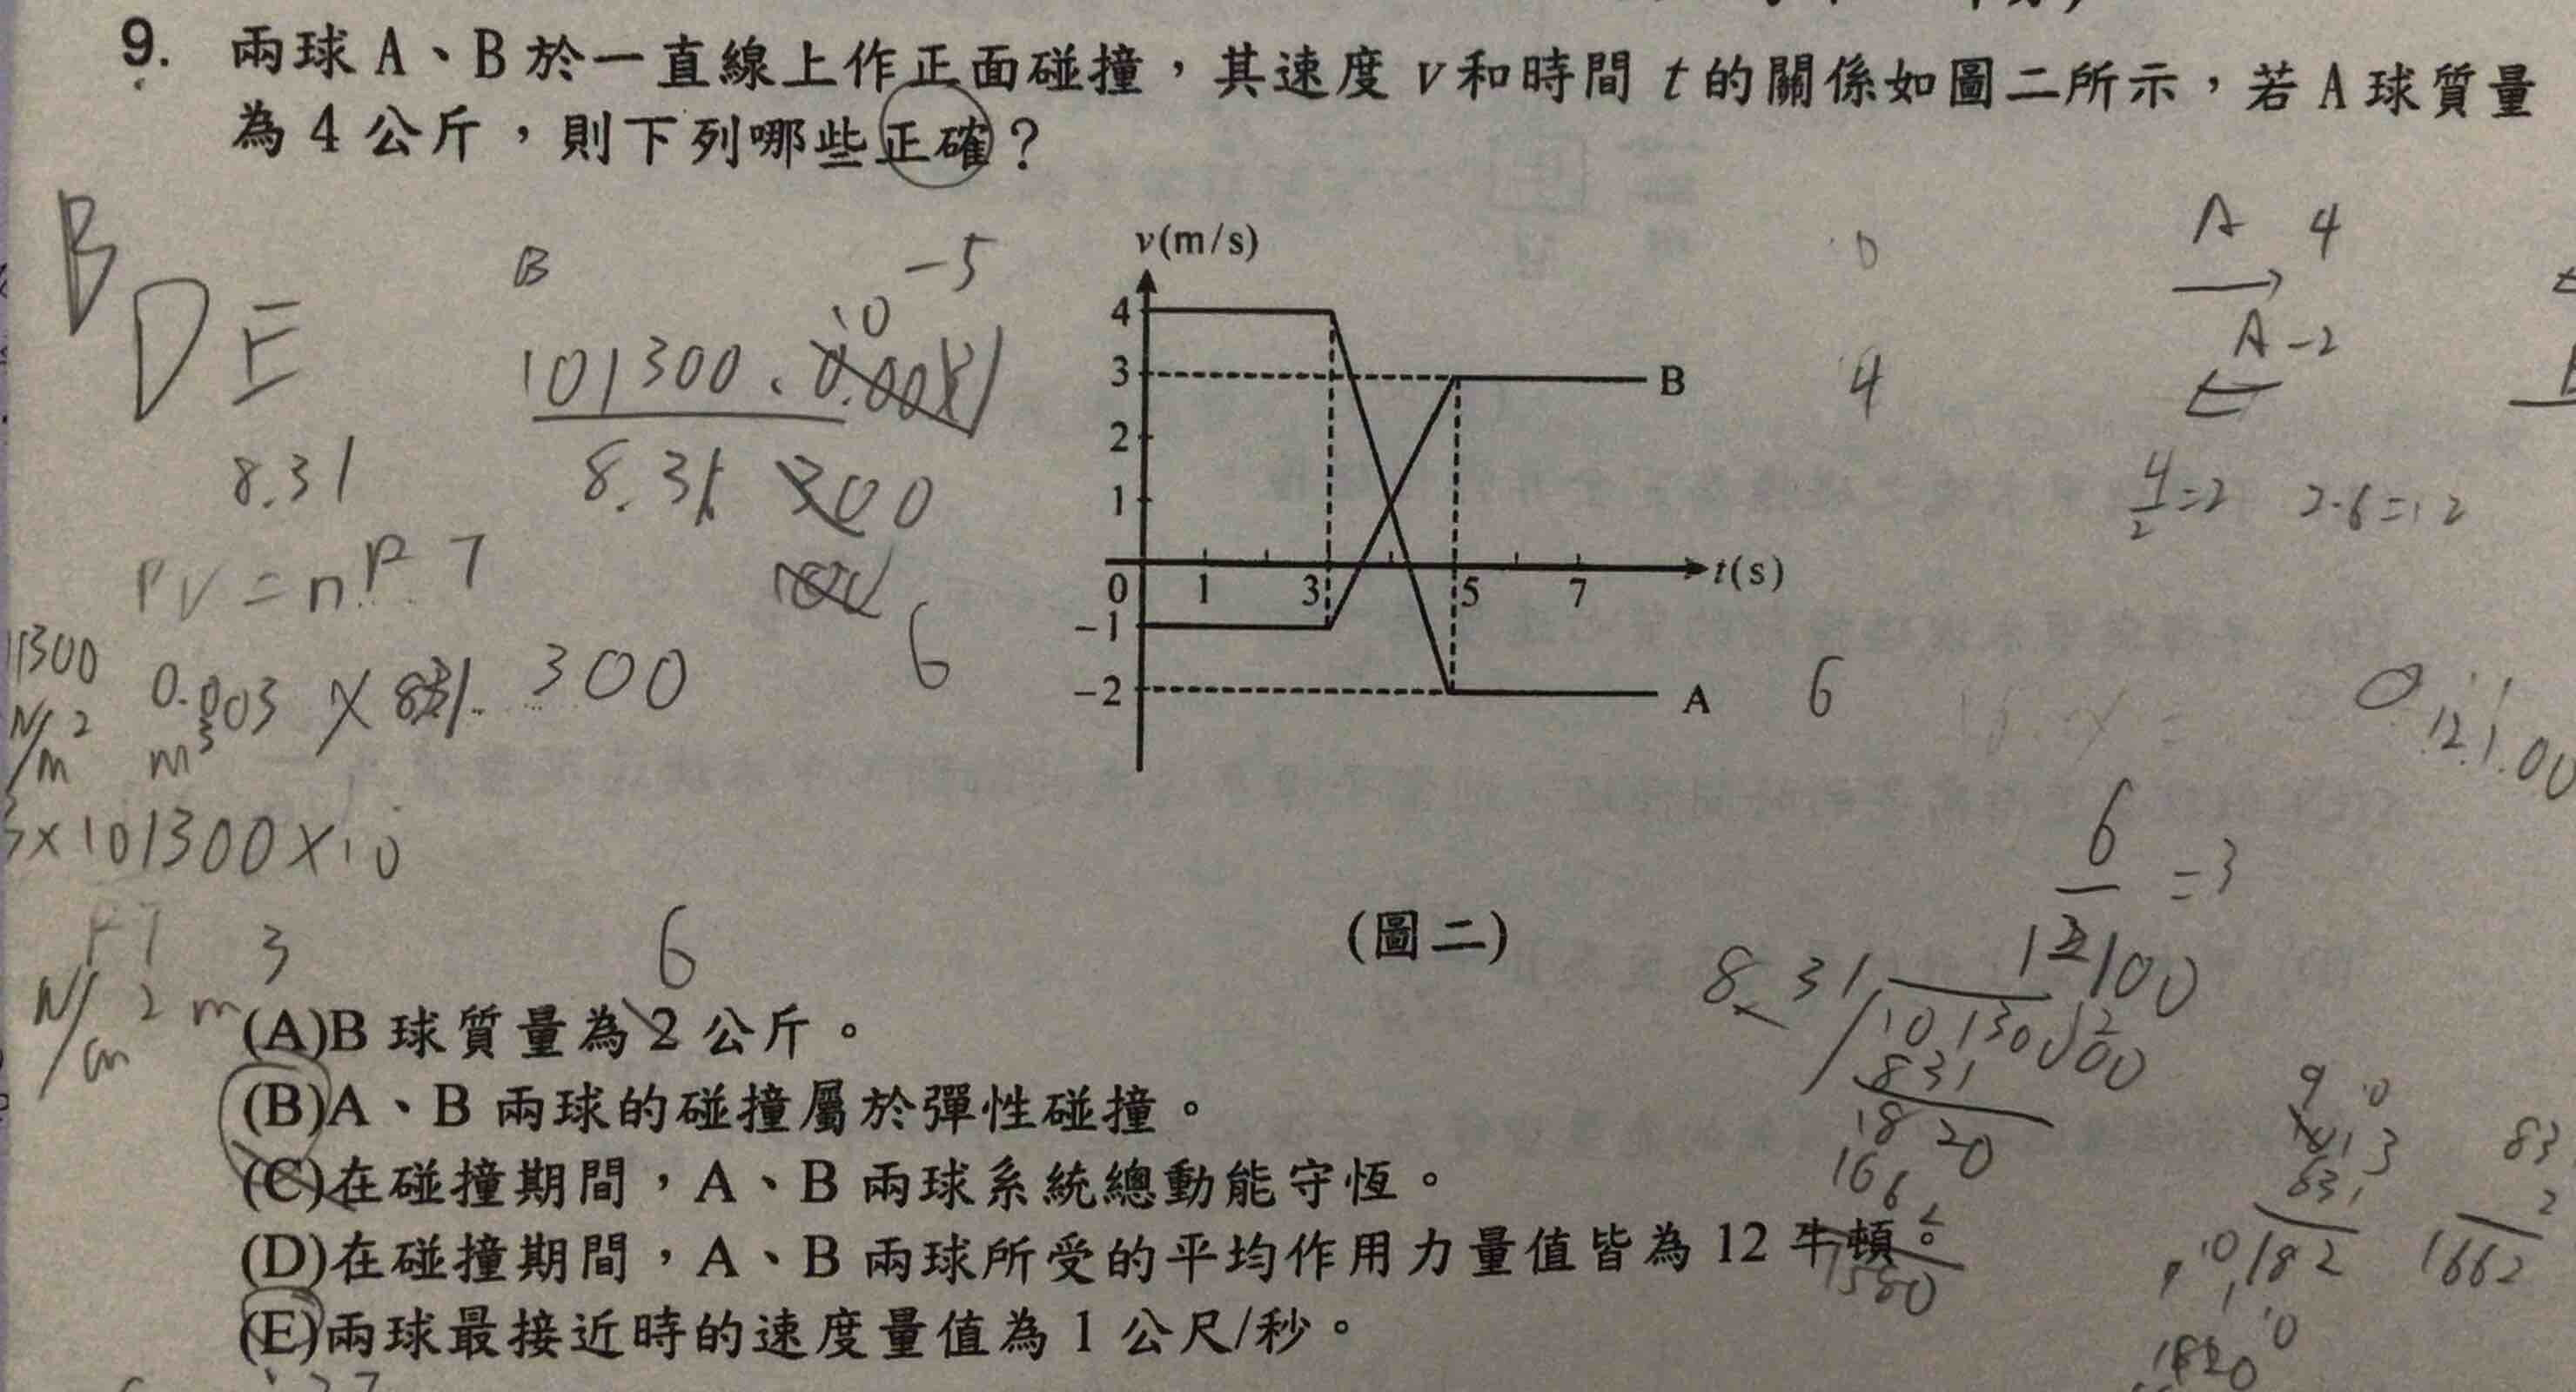 9. 兩球 A、B 於一直線上作正面碰撞，其速度 v 和時間 t 的關係如圖二所示，若 A 球質量
為 4 公斤，則下列哪些正確？
B
D E
B
-5
10
101300
8.31
300
8.31
PV = nRT
0.003 × 831 . 300
m³
N/m²
3×101300×10
6
3
6
N/cm²
v(m/s)
4
3
2
1
0
-1
-2
1 3 5 7
t(s)
B
A
0
4
6
A 4
A -2
4/2=2 2·6=12
6/2 =3
(圖二)
8.31
12100
831
1820
1662
1580
831
182
1662
1820
(A)B 球質量為 2 公斤。
(B)A、B 兩球的碰撞屬於彈性碰撞。
(C)在碰撞期間，A、B 兩球系統總動能守恆。
(D)在碰撞期間，A、B 兩球所受的平均作用力量值皆為 12 牛頓。
(E)兩球最接近時的速度量值為 1 公尺/秒。